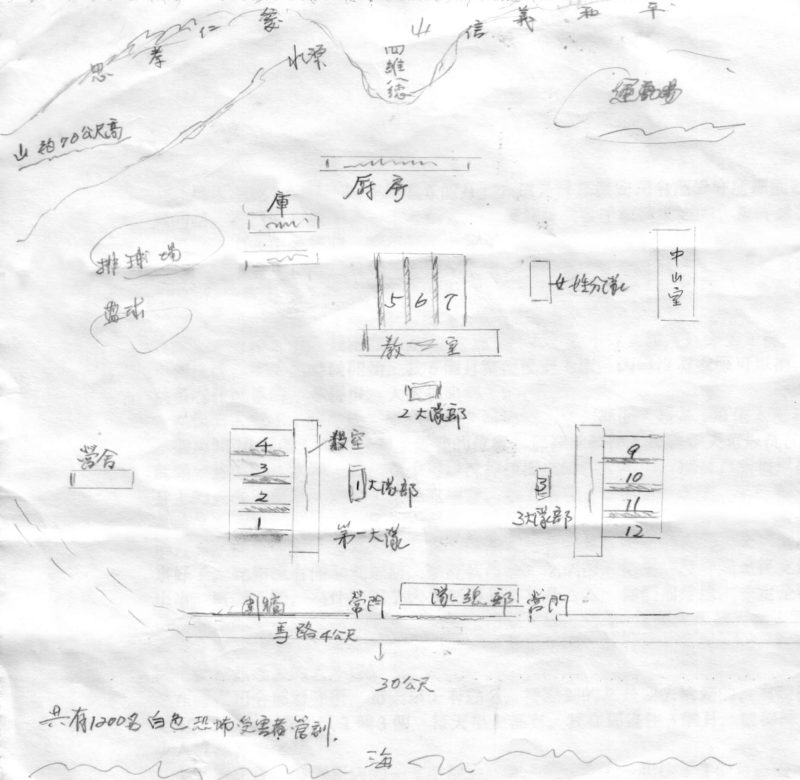 忠 孝 仁 愛
山
信 義 和 平
水源
四維八德
運動場
山約70公尺高
厨房
庫
排球場
中山室
女性分隊
5 6 7
籃球
教室
2大隊部
4
3
2
1
教室
營舍
1大隊部
第一大隊
3
3大隊部
9
10
11
12
圍牆
營門
隊總部
營門
馬路4公尺
30公尺
共有1200名白色恐怖受害者管訓.
海